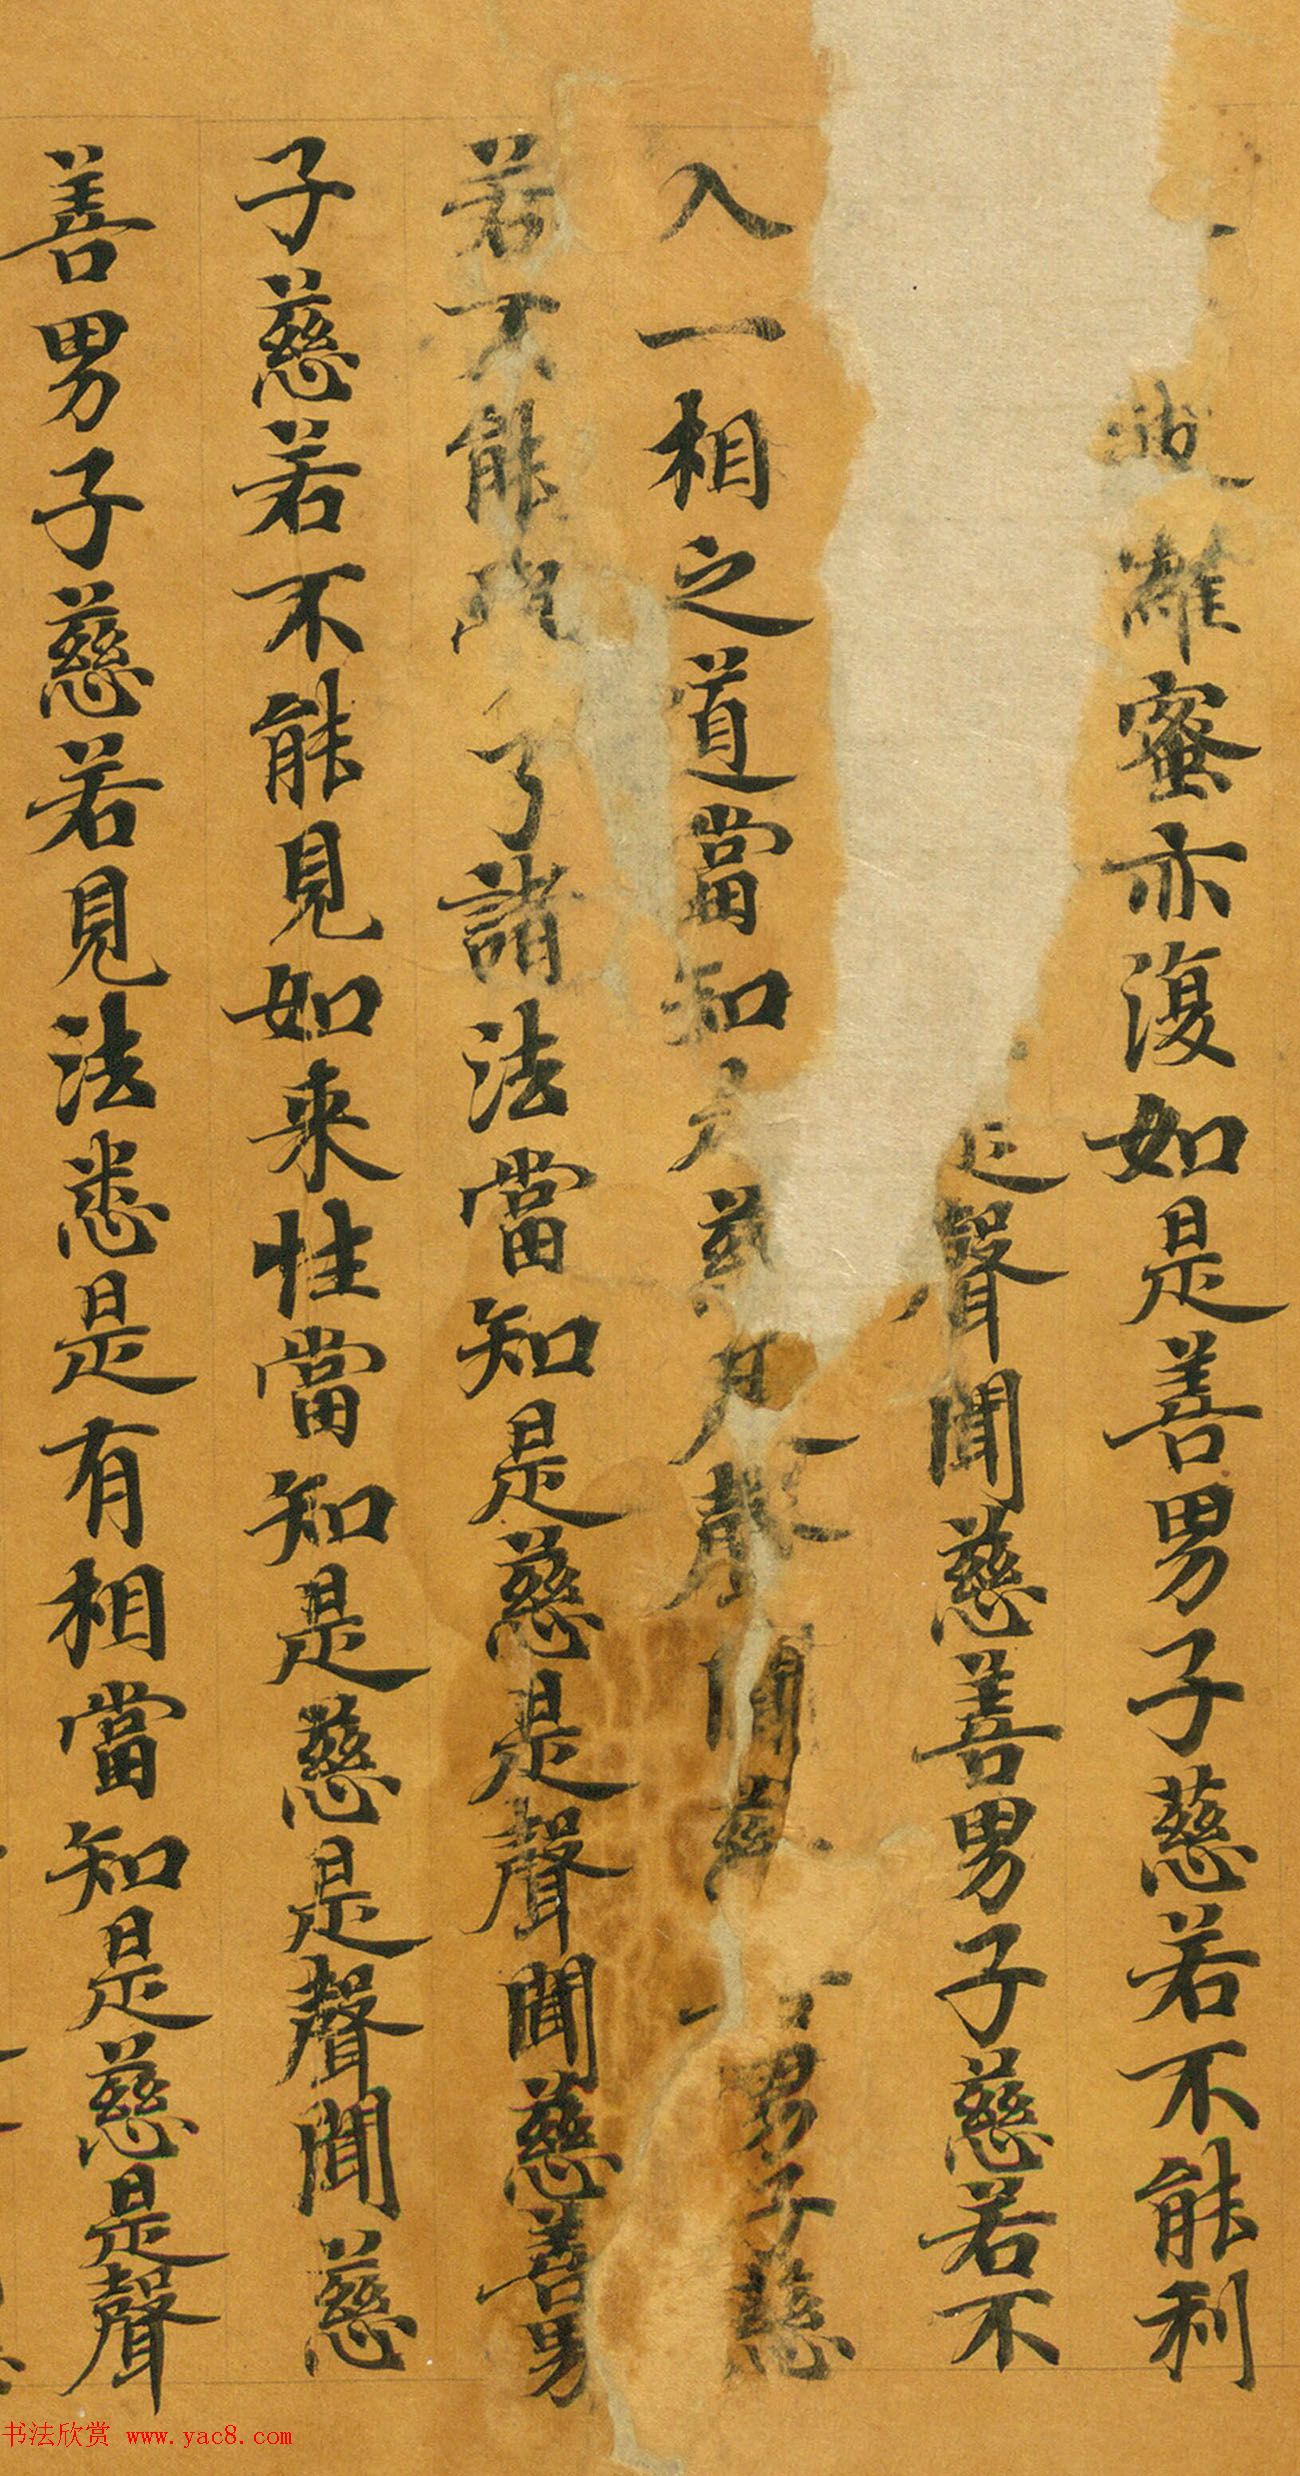 離蜜亦復如是善男子慈若不能利
是聲聞慈善男子慈若不
入一相之道當知是慈是聲聞慈男子慈
若不能覺了諸法當知是慈是聲聞慈善男
子慈若不能見如来性當知是慈是聲聞慈
善男子慈若見法悉是有相當知是慈是聲
书法欣赏 www.yac8.com